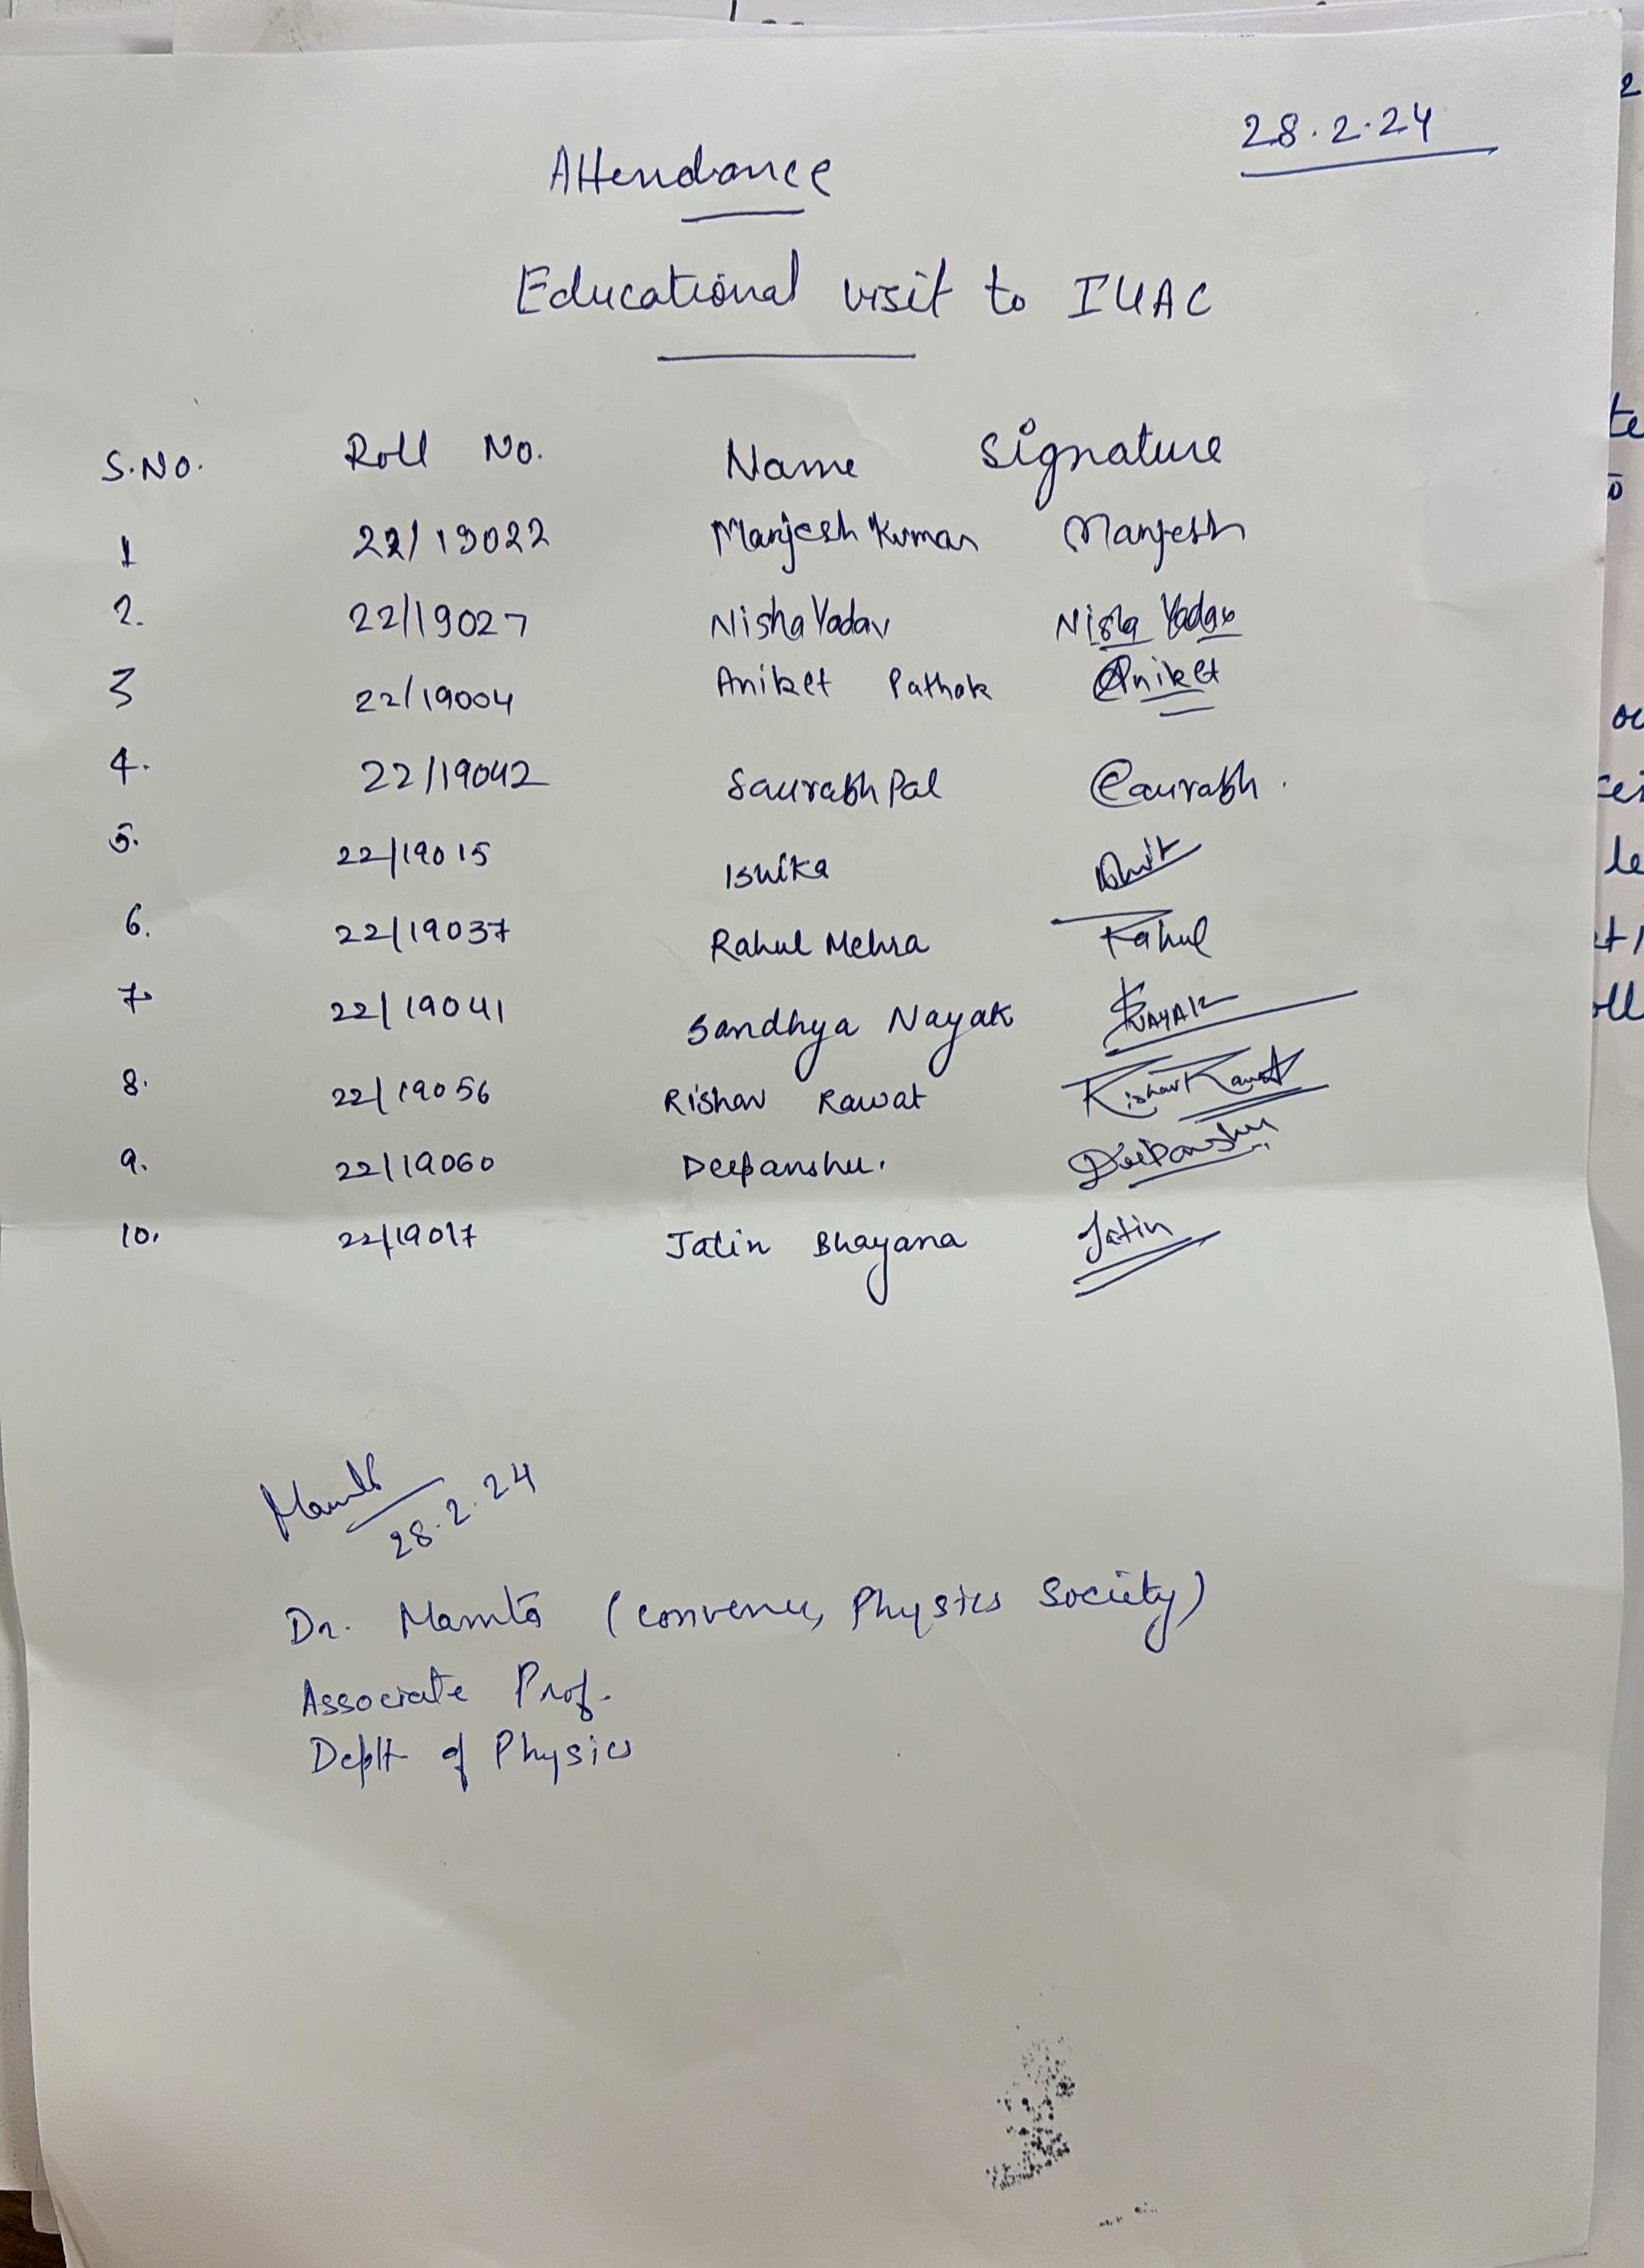 28.2.24
Attendance
Educational visit to IUAC
S.No. Roll No. Name Signature
1 22/19022 Manjesh Kumar Manjesh
2. 22/19027 Nisha Yadav Nisha Yadav
3 22/19004 Aniket Pathak Aniket
4. 22/19042 Saurabh Pal Saurabh.
5. 22/19015 Ishika
6. 22/19037 Rahul Mehra Rahul
7. 22/19041 Sandhya Nayak SNAYAK
8. 22/19056 Rishav Rawat Rishav Rawat
9. 22/19060 Deepanshu. Deepanshu
10. 22/19017 Jatin Bhayana Jatin
Mamta
28.2.24
Dr. Mamta (convener, Physics Society)
Associate Prof.
Deptt of Physics